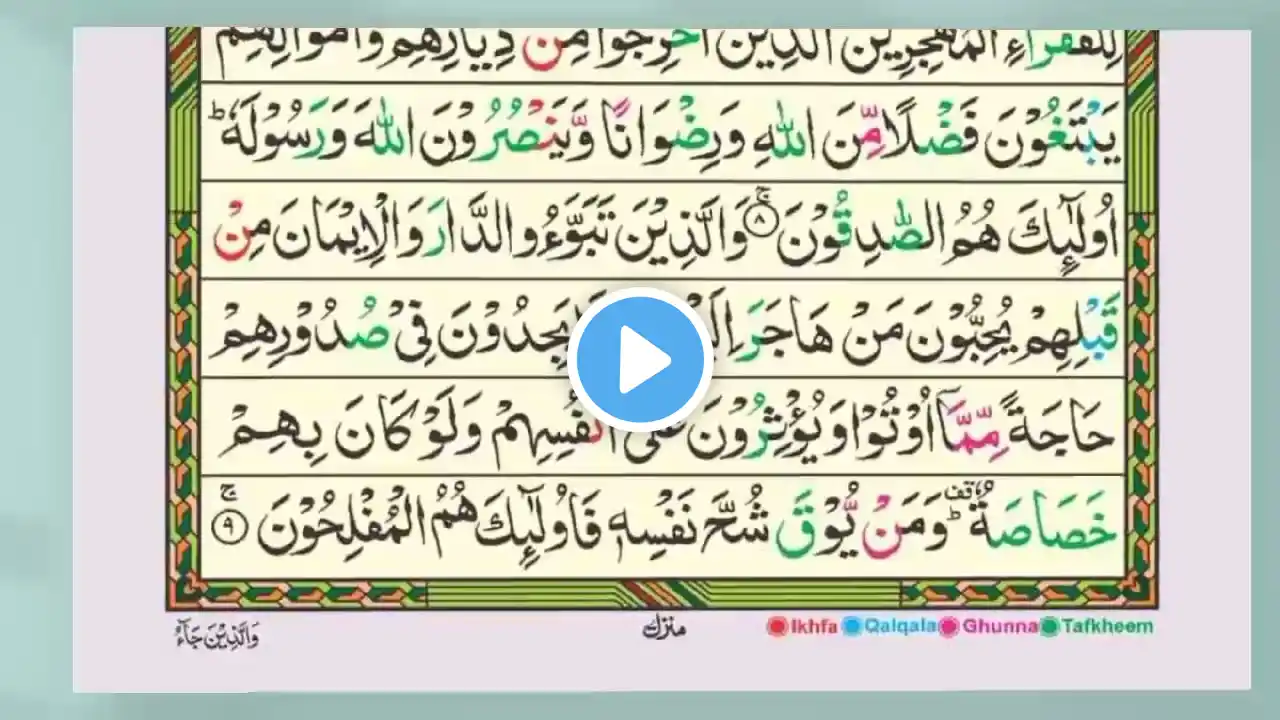 لِلْفُقَرَآءِ الْمُهٰجِرِيْنَ الَّذِيْنَ اُخْرِجُوْا مِنْ دِيَارِهِمْ وَاَمْوَالِهِمْ
يَبْتَغُوْنَ فَضْلًا مِّنَ اللّٰهِ وَرِضْوَانًا وَّيَنْصُرُوْنَ اللّٰهَ وَرَسُوْلَهٗ ؕ
اُولٰٓئِكَ هُمُ الصّٰدِقُوْنَ ۚ ﴿۸﴾ وَالَّذِيْنَ تَبَوَّءُو الدَّارَ وَالْاِيْمَانَ مِنْ
قَبْلِهِمْ يُحِبُّوْنَ مَنْ هَاجَرَ يَجِدُوْنَ فِيْ صُدُوْرِهِمْ
حَاجَةً مِّمَّآ اُوْتُوْا وَيُؤْثِرُوْنَ عَلٰٓى اَنْفُسِهِمْ وَلَوْ كَانَ بِهِمْ
خَصَاصَةٌ ؕ قف وَمَنْ يُّوْقَ شُحَّ نَفْسِهٖ فَاُولٰٓئِكَ هُمُ الْمُفْلِحُوْنَ ۚ ﴿۹﴾
وَالَّذِيْنَ جَآءُوْ منزل Ikhfa Qalqala Ghunna Tafkheem